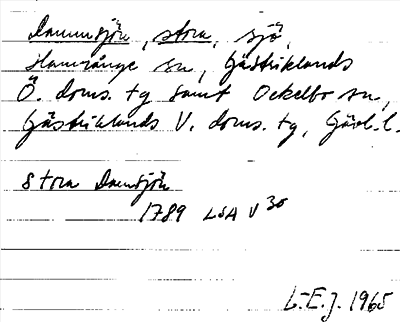 Dammsjön, stora, sjö,
Hamrånge sn, Gästriklands
Ö. doms. tg samt Ockelbo sn,
Gästriklands V. doms. tg, Gävl. l.
Stora Damsjön
1789 LSA V 30
L-E.J. 1965